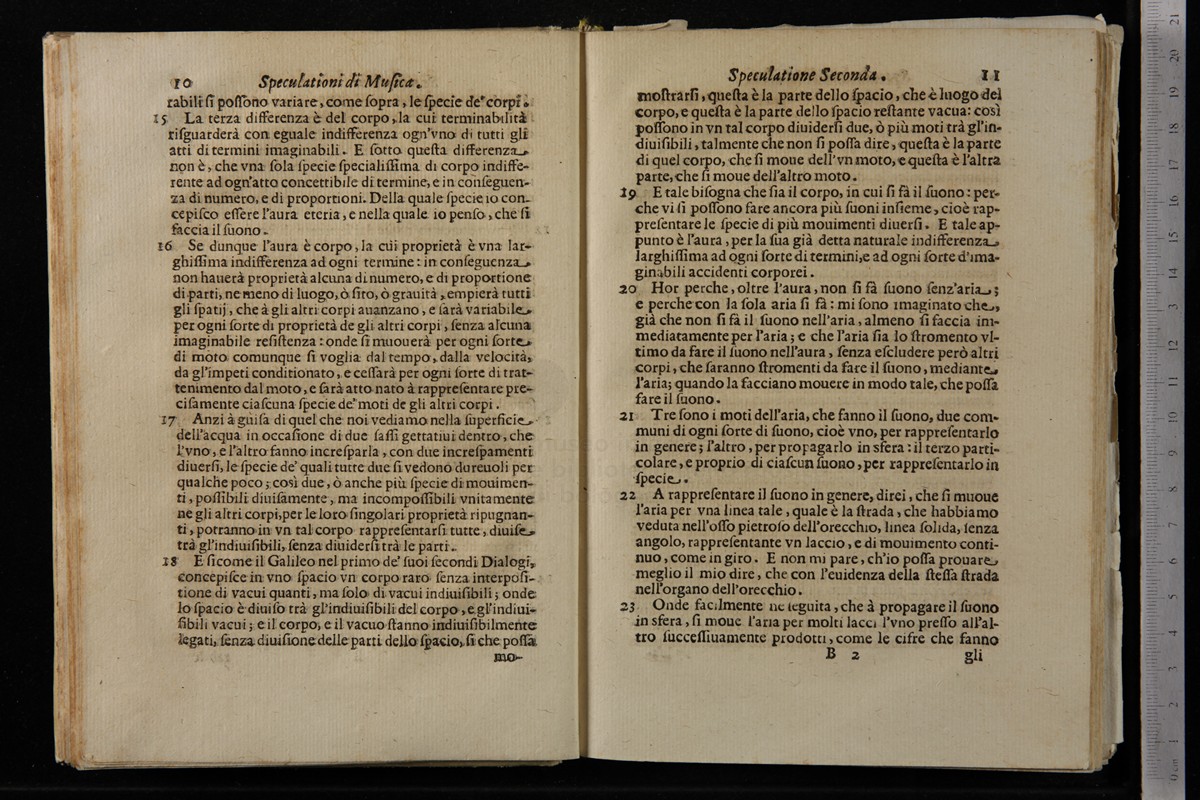 10 Speculationi di Musica.
rabili ſi poſſono variare, come ſopra, le ſpecie de' corpi.
15 La terza differenza è del corpo, la cui terminabilità
riſguarderà con eguale indifferenza ogn'vno di tutti gli
atti di termini imaginabili. E ſotto queſta differenza
non è, che vna ſola ſpecie ſpecialiſſima di corpo indiffe-
rente ad ogn'atto concettibile di termine, e in conſeguen-
za di numero, e di proportioni. Della quale ſpecie io con-
cepiſco eſſere l'aura eteria, e nella quale io penſo, che ſi
faccia il ſuono.
16 Se dunque l'aura è corpo, la cui proprietà è vna lar-
ghiſſima indifferenza ad ogni termine: in conſeguenza
non hauerà proprietà alcuna di numero, e di proportione
di parti, ne meno di luogo, ò ſito, ò grauità, empierà tutti
gli ſpatij, che à gli altri corpi auanzano, e ſarà variabile
per ogni ſorte di proprietà de gli altri corpi, ſenza alcuna
imaginabile reſiſtenza: onde ſi muouerà per ogni ſorte
di moto comunque ſi voglia dal tempo, dalla velocità,
da gl'impeti conditionato, e ceſſarà per ogni ſorte di trat-
tenimento dal moto, e ſarà atto nato à rappreſentare pre-
ciſamente ciaſcuna ſpecie de' moti de gli altri corpi.
17 Anzi à guiſa di quel che noi vediamo nella ſuperficie
dell'acqua in occaſione di due ſaſſi gettatiui dentro, che
l'vno, e l'altro fanno increſparla, con due increſpamenti
diuerſi, le ſpecie de' quali tutte due ſi vedono dureuoli per
qualche poco; così due, ò anche più ſpecie di mouimen-
ti, poſſibili diuiſamente, ma incompoſſibili vnitamente
ne gli altri corpi, per le loro ſingolari proprietà ripugnan-
ti, potranno in vn tal corpo rappreſentarſi tutte, diuiſe
trà gl'indiuiſibili, ſenza diuiderſi trà le parti.
18 E ſicome il Galileo nel primo de' ſuoi ſecondi Dialogi,
concepiſce in vno ſpatio vn corpo raro ſenza interpoſi-
tione di vacui quanti, ma ſolo di vacui indiuiſibili; onde
lo ſpacio è diuiſo trà gl'indiuiſibili del corpo, e gl'indiui-
ſibili vacui; e il corpo, e il vacuo ſtanno indiuiſibilmente
legati, ſenza diuiſione delle parti dello ſpacio, ſi che poſſa
mo-
Speculatione Seconda. 11
moſtrarſi, queſta è la parte dello ſpacio, che è luogo del
corpo, e queſta è la parte dello ſpacio reſtante vacua: così
poſſono in vn tal corpo diuiderſi due, ò più moti trà gl'in-
diuiſibili, talmente che non ſi poſſa dire, queſta è la parte
di quel corpo, che ſi moue dell'vn moto, e queſta è l'altra
parte, che ſi moue dell'altro moto.
19 E tale biſogna che ſia il corpo, in cui ſi fà il ſuono: per-
che vi ſi poſſono fare ancora più ſuoni inſieme, cioè rap-
preſentare le ſpecie di più mouimenti diuerſi. E tale ap-
punto è l'aura, per la ſua già detta naturale indifferenza
larghiſſima ad ogni ſorte di termini, e ad ogni ſorte d'ima-
ginabili accidenti corporei.
20 Hor perche, oltre l'aura, non ſi fà ſuono ſenz'aria;
e perche con la ſola aria ſi fà: mi ſono imaginato che,
già che non ſi fà il ſuono nell'aria, almeno ſi faccia im-
mediatamente per l'aria; e che l'aria ſia lo ſtromento vl-
timo da fare il ſuono nell'aura, ſenza eſcludere però altri
corpi, che ſaranno ſtromenti da fare il ſuono, mediante
l'aria; quando la facciano mouere in modo tale, che poſſa
fare il ſuono.
21 Tre ſono i moti dell'aria, che fanno il ſuono, due com-
muni di ogni ſorte di ſuono, cioè vno, per rappreſentarlo
in genere; l'altro, per propagarlo in sfera: il terzo parti-
colare, e proprio di ciaſcun ſuono, per rappreſentarlo in
ſpecie.
22 A rappreſentare il ſuono in genere, direi, che ſi muoue
l'aria per vna linea tale, quale è la ſtrada, che habbiamo
veduta nell'oſſo pietroſo dell'orecchio, linea ſolida, ſenza
angolo, rappreſentante vn laccio, e di mouimento conti-
nuo, come in giro. E non mi pare, ch'io poſſa prouare
meglio il mio dire, che con l'euidenza della ſteſſa ſtrada
nell'organo dell'orecchio.
23 Onde facilmente ne ſeguita, che à propagare il ſuono
in sfera, ſi moue l'aria per molti lacci l'vno preſſo all'al-
tro ſucceſſiuamente prodotti, come le cifre che fanno
B 2 gli